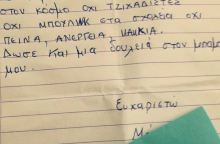 στον κόσμο όχι τζιχαδιστές
όχι μπούλινκ στα σχολεία όχι
πείνα, ανεργεία, κακκία.
Δώσε και μια δουλειά στον μπαμπά
μου.
Ευχαριστώ